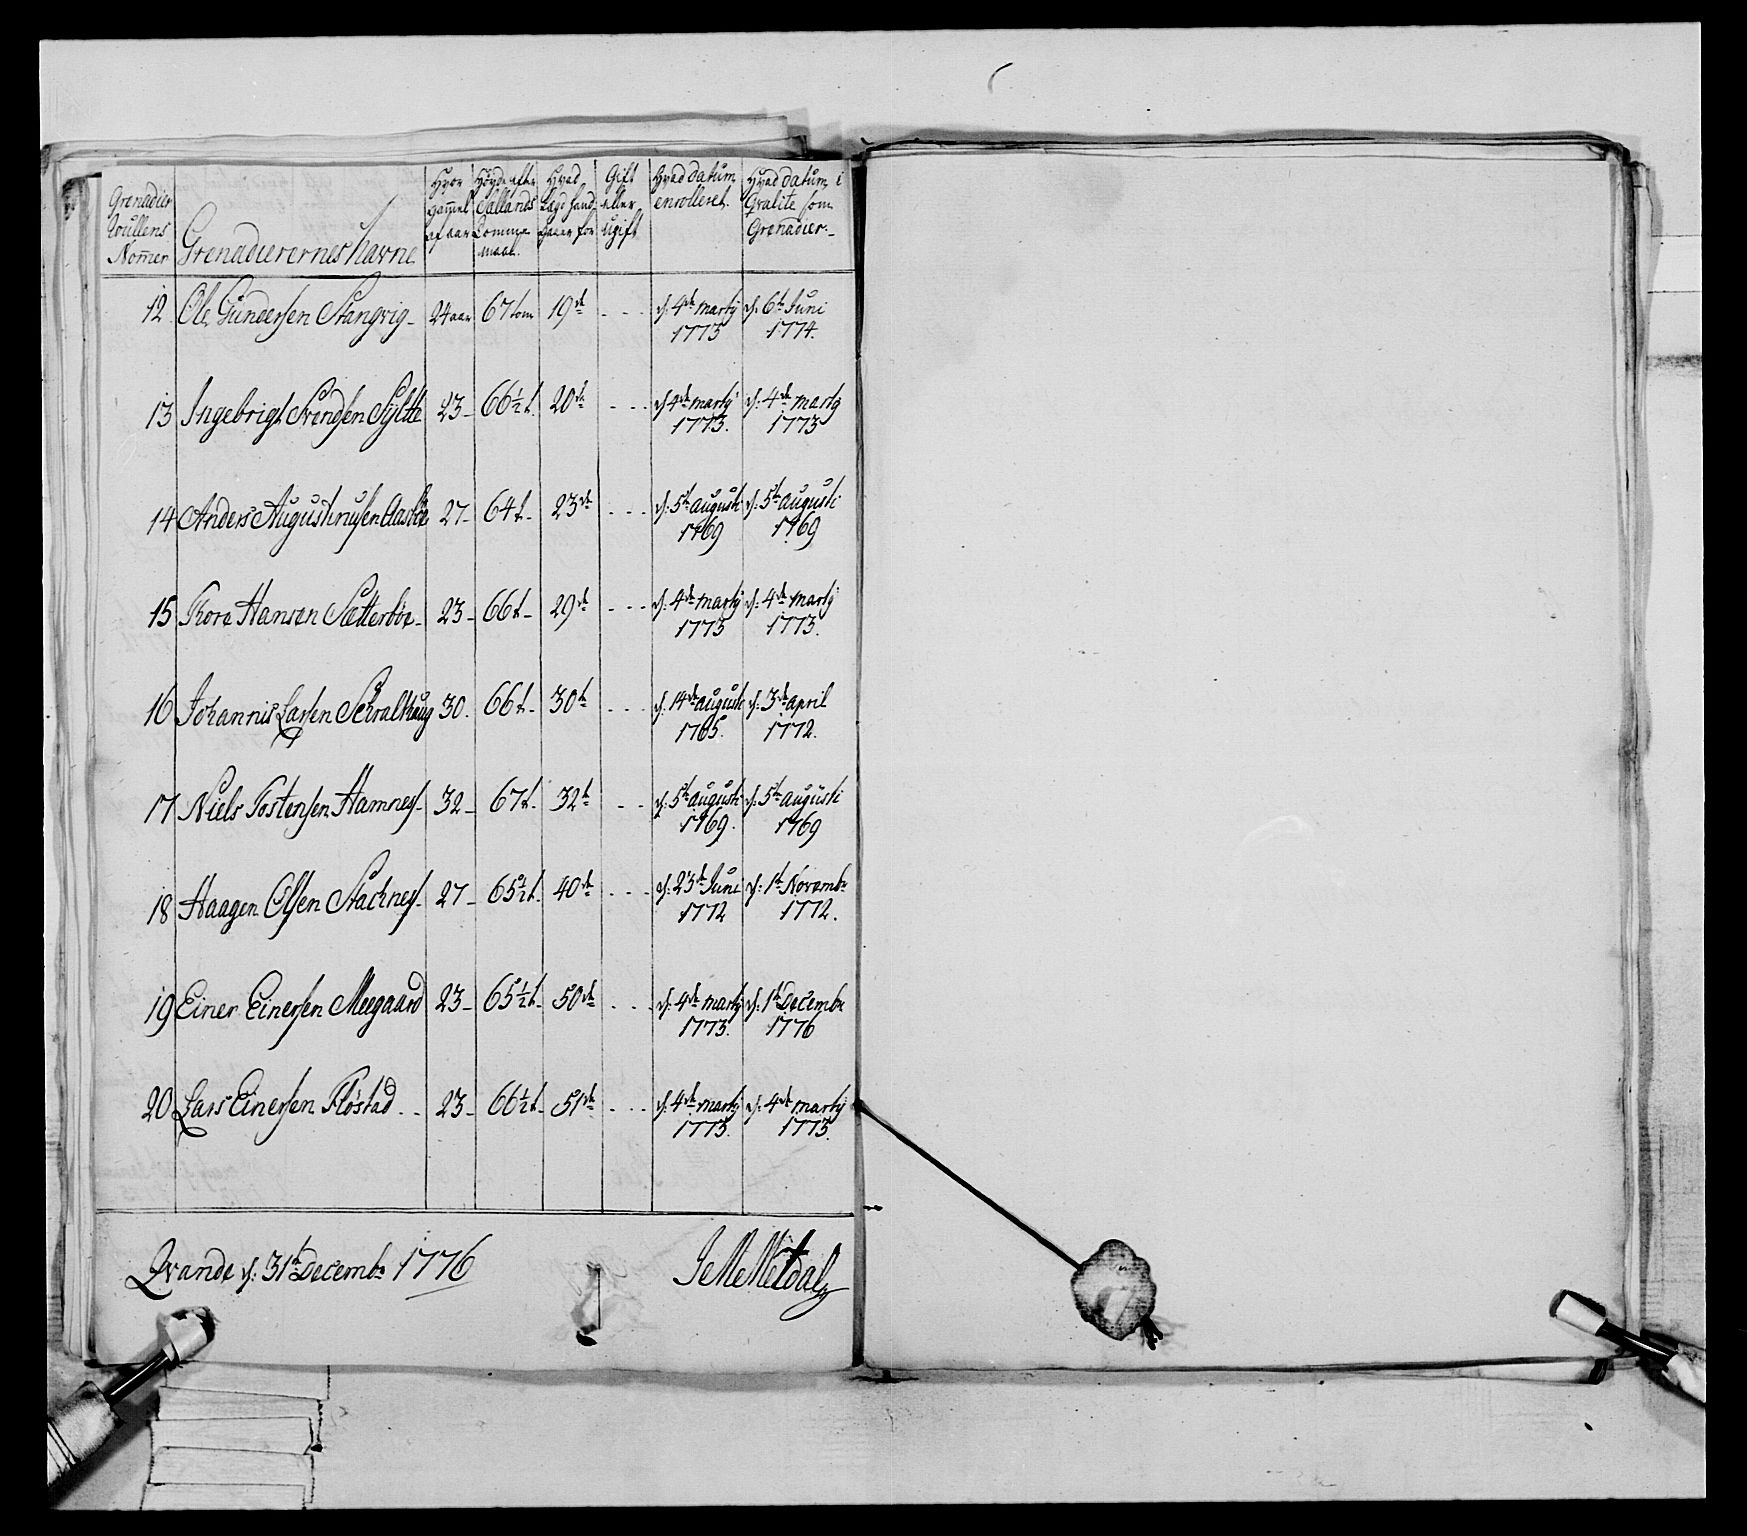 Grenadier Rullens Nomer | Grenadierernes Navne | Hvor gammel af aar | Høyde efter Sællands Tomme maal. | Hvad Lægd hand staaer for | Gift eller ugift | Hvad datum enrolleret. | Hvad datum i Qvalite som Grenadier.
12 Ole Gundersen Stangvig 24 aar 67 tom 19de - - - d: 4de marty 1773 d: 6te Juni 1774.
13 Ingebrigt Svendsen Sylte 23 66½ t. 20de - - - d 4de marty 1773. d: 4de marty 1773
14 Anders Augustinusen Aasbøe 27 64 t 23de - - - d: 5te augusti 1769 d: 5te augusti 1769
15 Thore Hansen Sætterbøe 23 66 t 29de - - - d: 4de marty 1773 d: 4de marty 1773.
16 Johannis Larsen 30. 66 t 30te - - - d: 14de augusti 1765. d: 3de april 1772.
17 Niels Tostensen Hamnes 32 67 t. 32te - - d: 5te augusti 1769. d: 5te augusti 1769
18 Haagen Olsen Stachnes 27 65½ t. 40de - - - d: 23de Juni 1772 d: 1te Novembr 1772.
19 Einer Einersen Meegaard 23 65½ t. 50de - - - d: 4de marty 1773. d: 1te Decembr 1776
20 Lars Einersen Fløstad 23 66½ t. 51de - - - d: 4de marty 1773. d: 4de marty 1773.
Qvande d: 31te Decembr 1776